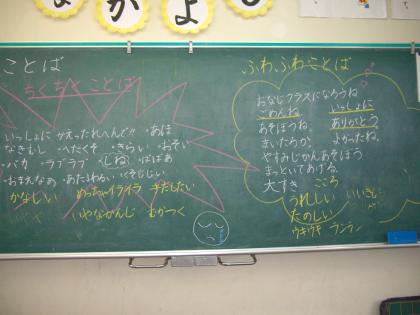 なかよし
ことば
ちくちくことば
いっしょにかえったれへんで!! ・あほ
なきむし ・へたくそ ・きらい ・おそい
・バカ ・ラブラブ ・しね ・ばばあ
・おまえなぁ ・あたまわるい ・くそじじい
かなしい めっちゃイライラ 手だしたい
いやなかんじ むかつく
ふわふわことば
おなじクラスになろうね
ごめんね。 いっしょに
あそぼうね。 ありがとう
まいたうか。 よかったね。
やすみじかんあそぼう
まっといてあげる。
大すき
こころ
うれしい
たのしい
ウキウキ ランラン